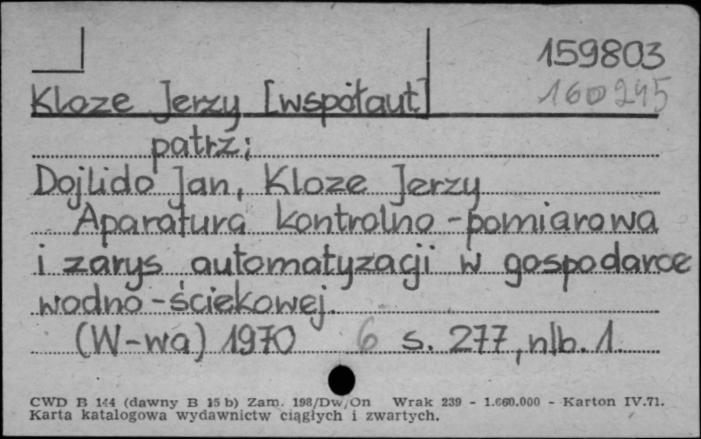 159803
160245
Kloze Jerzy [współaut]
patrz;
Dojlido Jan, Kloze Jerzy
Aparatura kontrolno-pomiarowa
i zarys automatyzacji w gospodarce
wodno-ściekowej.
(W-wa) 1970 6 s. 277, nlb. 1.
CWD B 144 (dawny B 15 b) Zam. 198/Dw/On Wrak 239 - 1.660.000 - Karton IV.71.
Karta katalogowa wydawnictw ciągłych i zwartych.